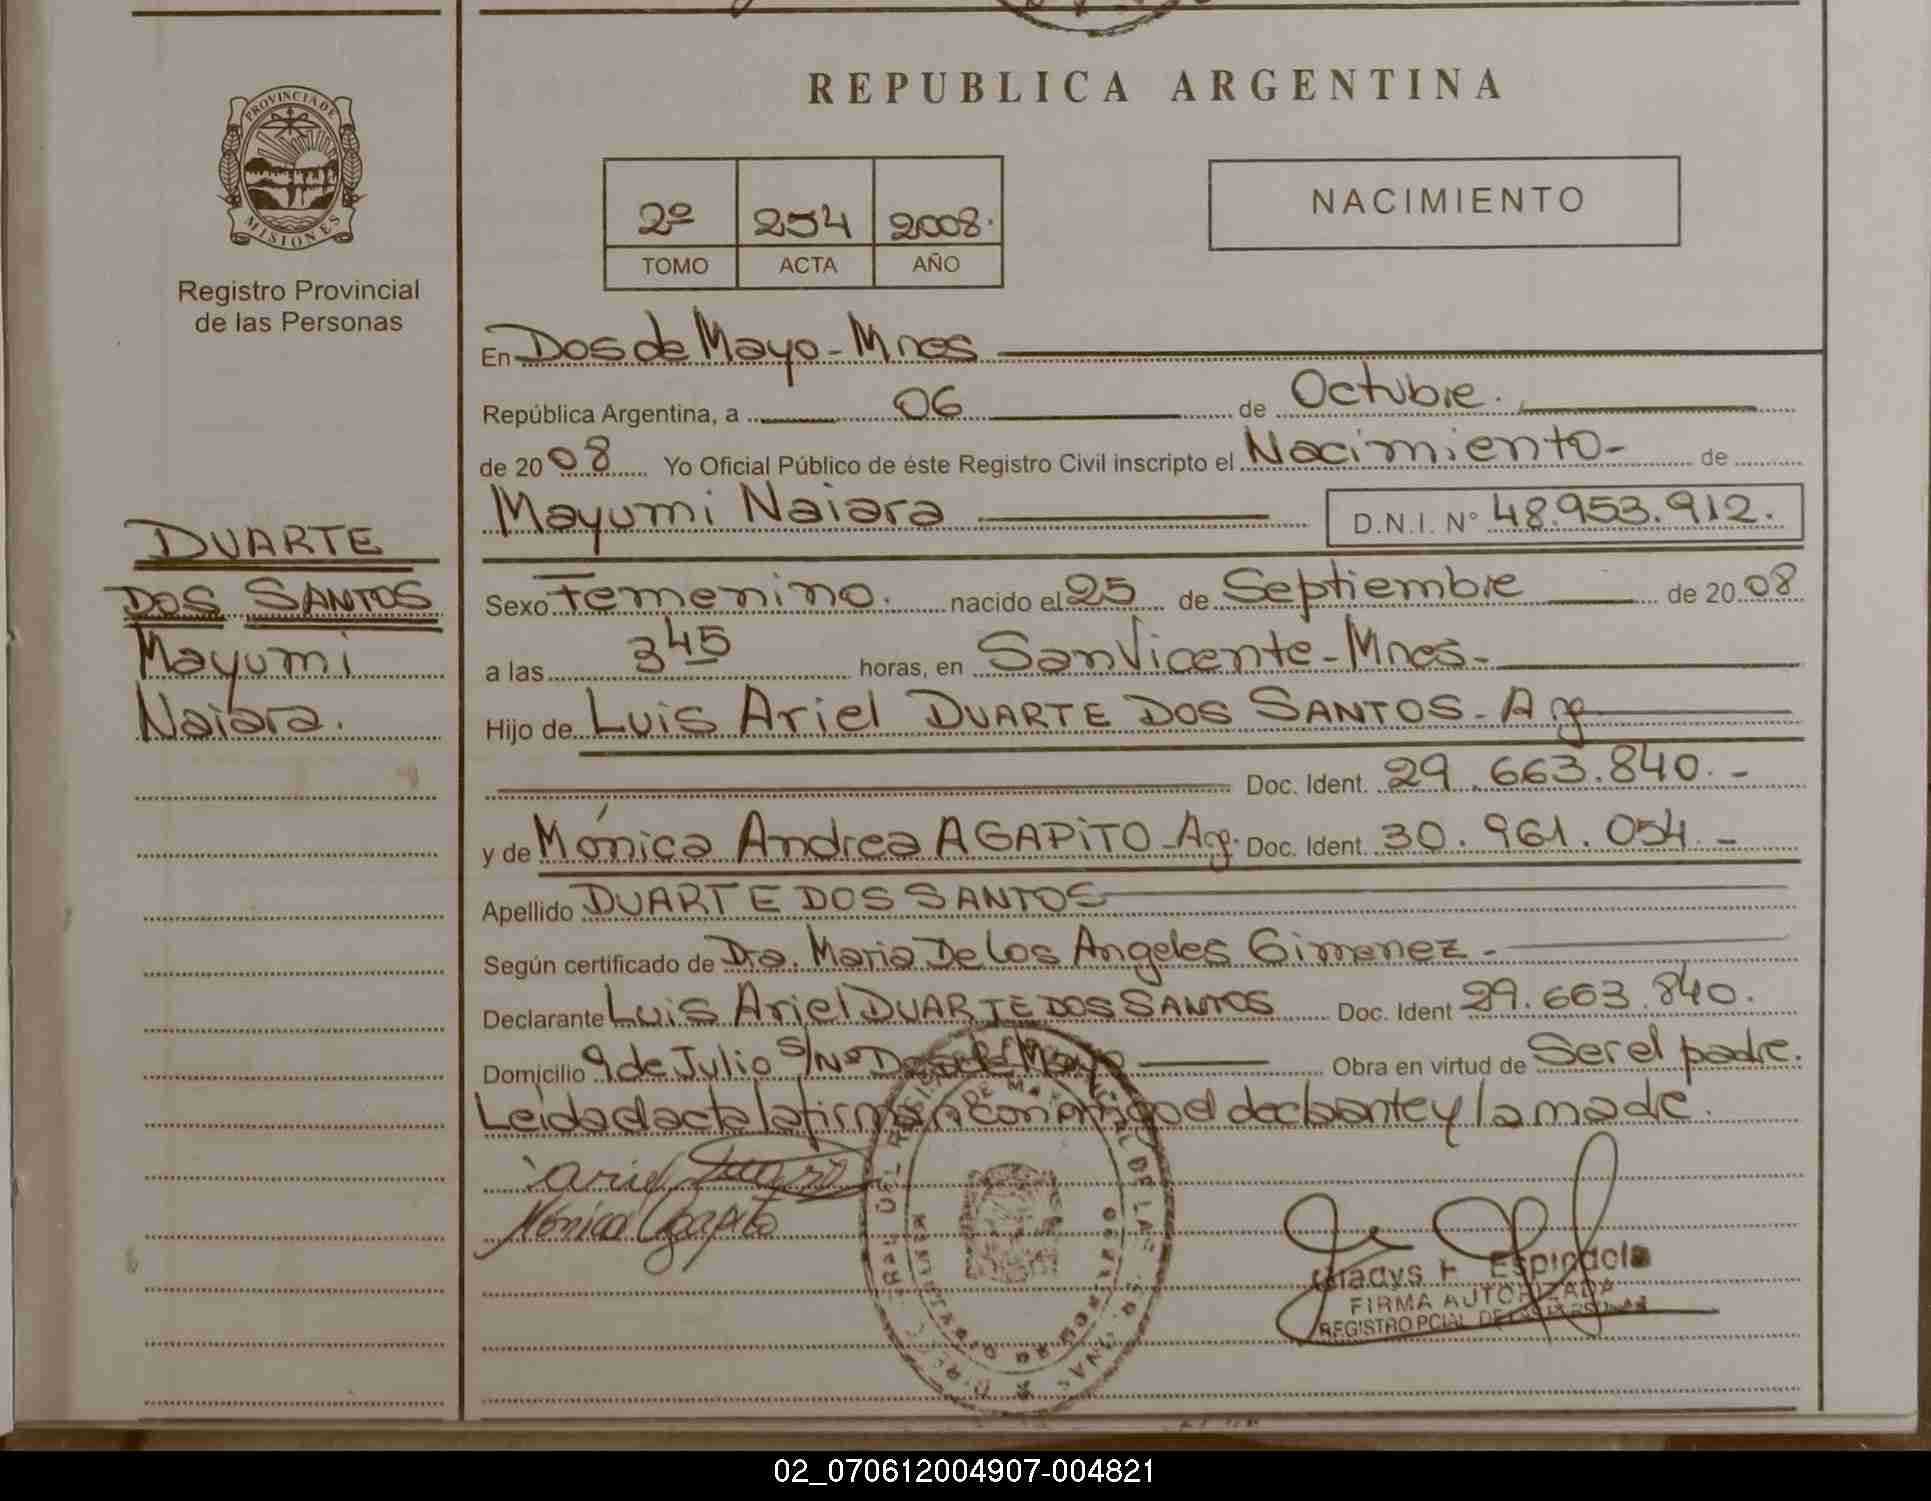 REPUBLICA ARGENTINA
PROVINCIA DE
MISIONES
Registro Provincial
de las Personas
2º 254 2008.
TOMO ACTA AÑO
NACIMIENTO
En Dos de Mayo - Mnes
República Argentina, a 06 de Octubre.
de 2008 Yo Oficial Público de éste Registro Civil inscripto el Nacimiento - de
Mayumi Naiara D.N.I. Nº 48.953.912.
DUARTE
DOS SANTOS
Mayumi
Naiara.
Sexo Femenino. nacido el 25 de Septiembre de 2008
a las 3 45 horas, en San Vicente - Mnes -
Hijo de Luis Ariel DUARTE DOS SANTOS - Arg
Doc. Ident. 29.663.840. -
y de Mónica Andrea AGAPITO - Arg. Doc. Ident. 30.961.054. -
Apellido DUARTE DOS SANTOS
Según certificado de Dra. Maria De Los Angeles Gimenez -
Declarante Luis Ariel DUARTE DOS SANTOS Doc. Ident 29.663.840.
Domicilio 9 de Julio S/Nº Dos de Mayo Obra en virtud de Ser el padre.
Leida el acta la firman conmigo el declarante y la madre.
Ariel
Mónica Agapito
Gladys F. Espindola
FIRMA AUTORIZADA
REGISTRO PCIAL DE LAS PERSONAS
02_070612004907-004821